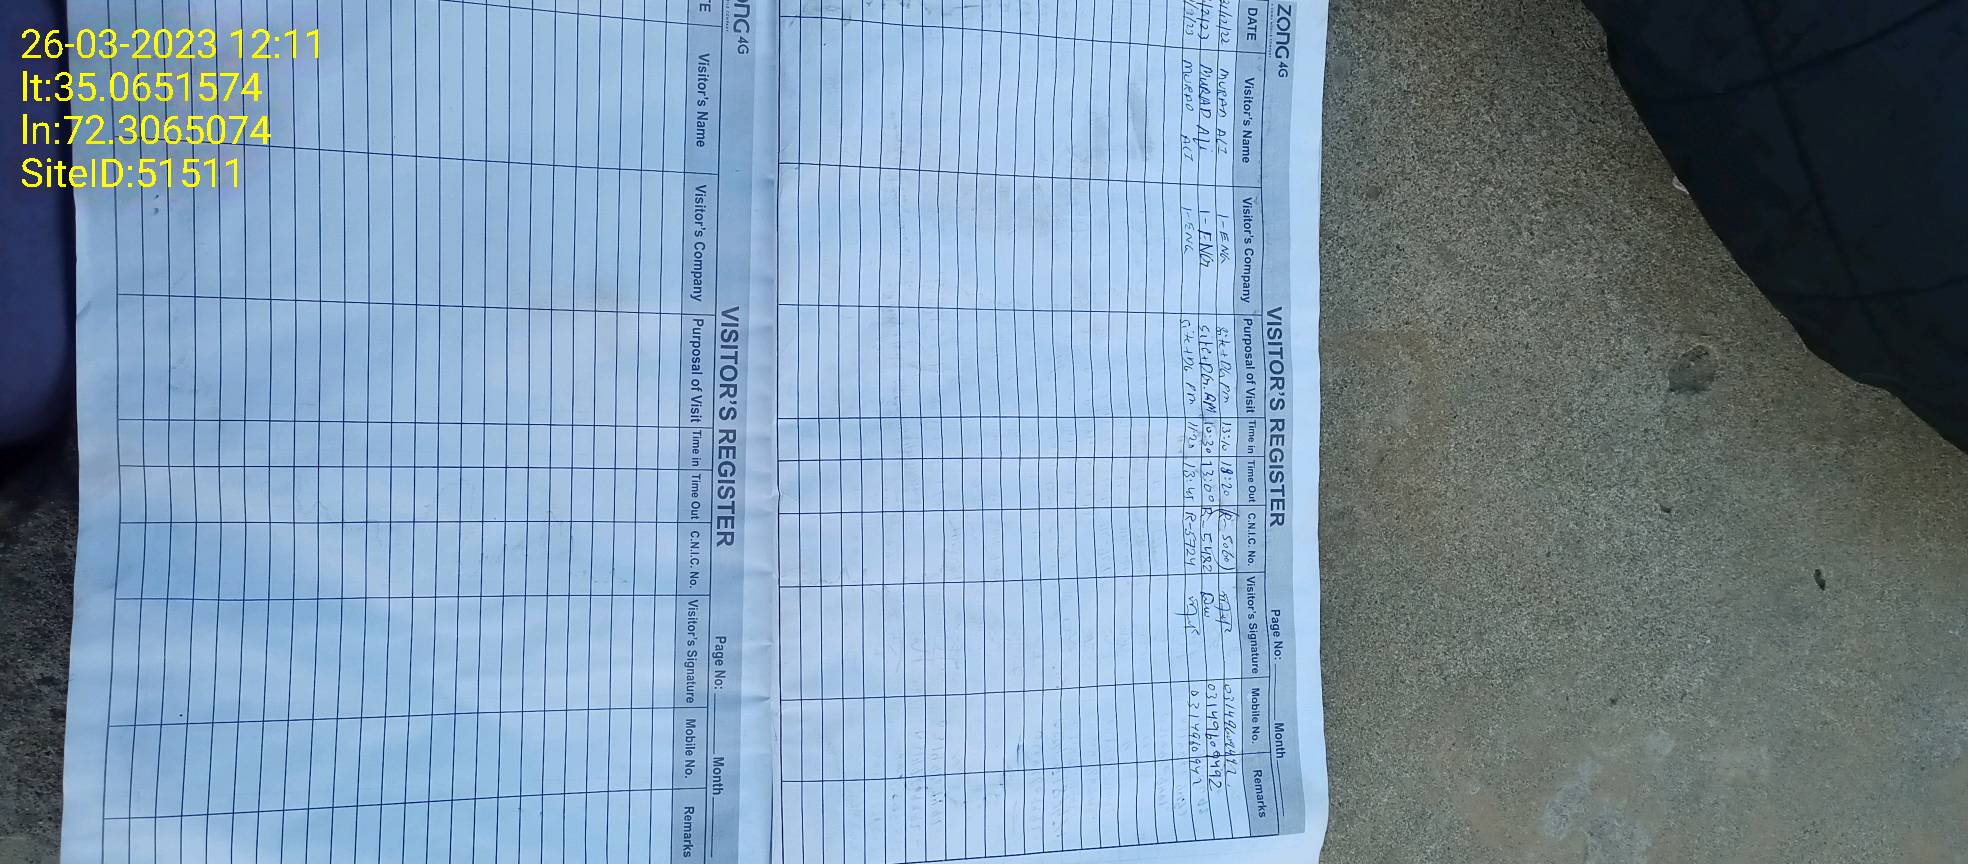 26-03-2023 12:11
lt:35.0651574
ln:72.3065074
SiteID:51511
ZONG 4G
VISITOR'S REGISTER
Page No: Month
DATE Visitor's Name Visitor's Company Purposal of Visit Time in Time Out C.N.I.C. No. Visitor's Signature Mobile No. Remarks
MURAD ALI 1-ENG Site+DG PM 13:10 18:20 R-5060
MURAD Ali 1-ENG Site+DG.PM 10:30 13:00 R-5482
MURAD ALI 1-ENG Site+DG PM 11:20 13:45 R-5724
ONG 4G
VISITOR'S REGISTER
Page No: Month
TE Visitor's Name Visitor's Company Purposal of Visit Time in Time Out C.N.I.C. No. Visitor's Signature Mobile No. Remarks